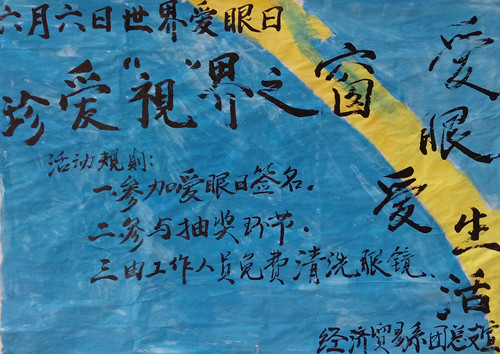 六月六日世界爱眼日
珍爱“視”界之窗
爱眼
爱生活
活动规则:
一.参加爱眼日签名.
二.参与抽奖环节.
三由工作人员免费清洗眼镜
经济贸易系团总支宣